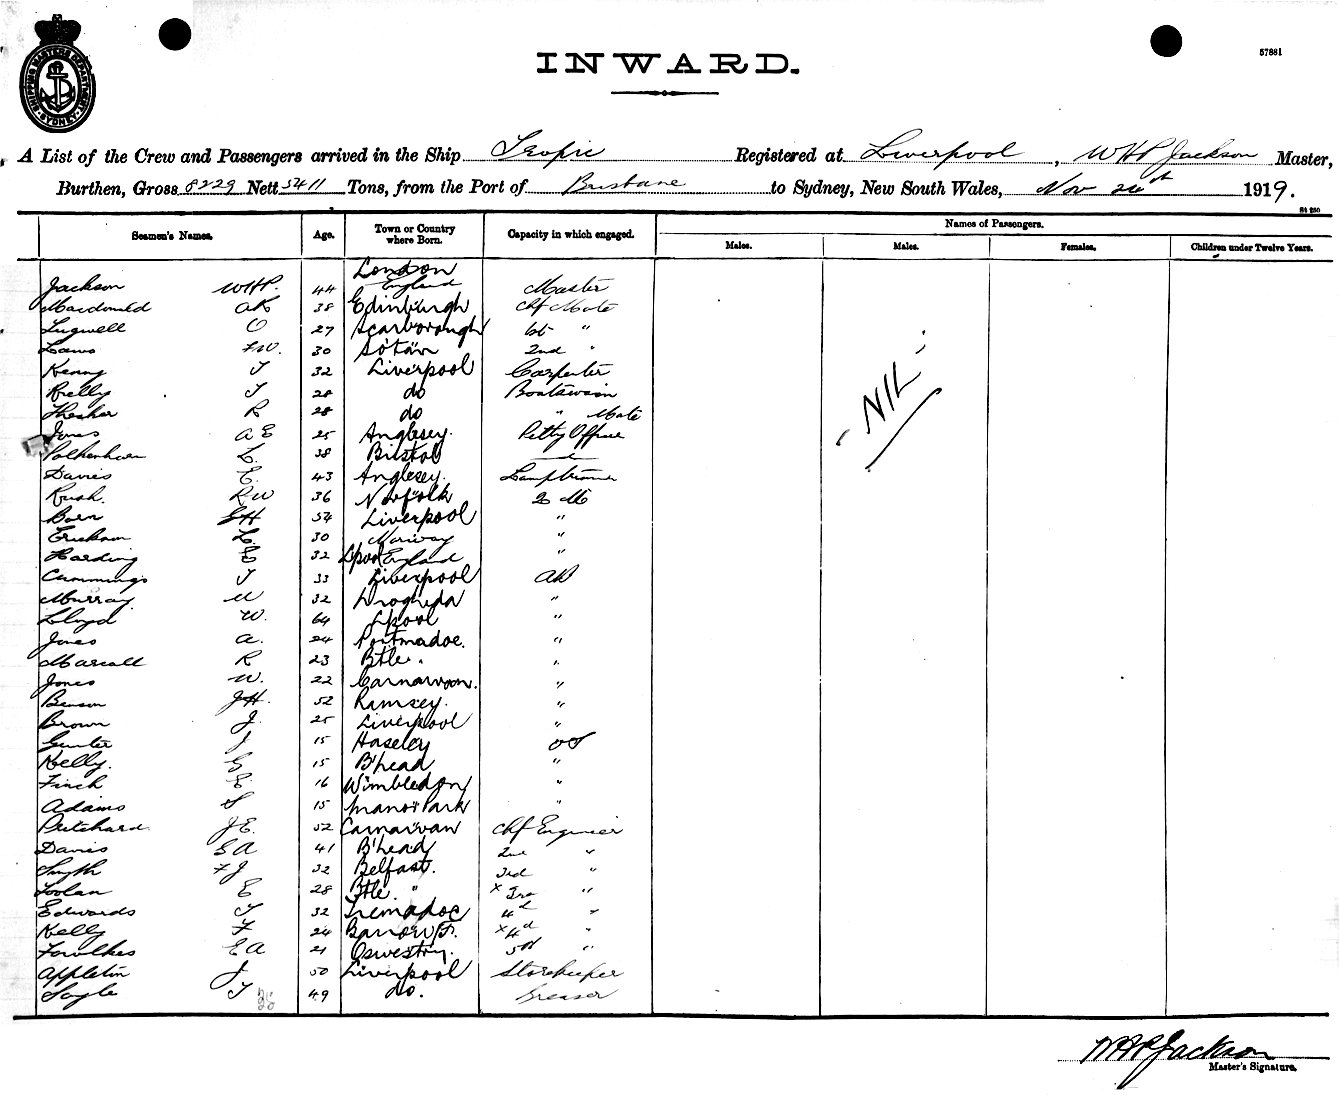 SHIPPING MASTER'S DEPARTMENT SYDNEY
57881
INWARD.
A List of the Crew and Passengers arrived in the Ship Tropic Registered at Liverpool, WHP Jackson Master,
Burthen, Gross 8229 Nett 5411 Tons, from the Port of Brisbane to Sydney, New South Wales, Nov 24th 1919.
Seamen's Names. Age. Town or Country where Born. Capacity in which engaged. Names of Passengers.
Males. Males. Females. Children under Twelve Years.
Jackson WHP. 44 London England Master
Macdonald AK 38 Edinburgh Chf Mate
Lugwell O 27 Scarborough 1st "
Laws FW. 30 2nd "
Kenny T 32 Liverpool Carpenter
Kelly T 28 do Boatswain
R 28 do " Mate
Jones A E 25 Anglesey. Petty Officer
L. 38 Bristol
Davies E. 43 Anglesey. Lamptrimmer
Rush. RW 36 Norfolk Q M
Born GH 54 Liverpool "
Erickson L. 30 Norway "
Harding E 32 Lpool England "
Cummings T 33 Liverpool AB
Murray M 32 Drogheda "
Lloyd W. 64 Lpool "
Jones A. 24 Portmadoc. "
R 23 Btle. "
Jones W. 22 Carnarvon. "
Benson JH. 52 Ramsey. "
Brown J. 25 Liverpool "
Gunter J 15 Haseley OS
Kelly. G 15 B'head "
Finch E 16 Wimbledon "
Adams S 15 Manor Park "
Pritchard. JE. 52 Carnarvan Chf Engineer
Davies GA 41 B'head 2nd "
Smyth FJ 32 Belfast. 3rd "
Toolan E 28 Btle. " x 3rd "
Edwards T 32 Tremadoc 4th "
Kelly F 24 Barrow/F. x 4th "
Foulkes EA 21 Oswestry. 5th "
Appleton J 50 Liverpool Storekeeper
Sayle T 49 do. Greaser
NIL
WHP Jackson
Master's Signature.